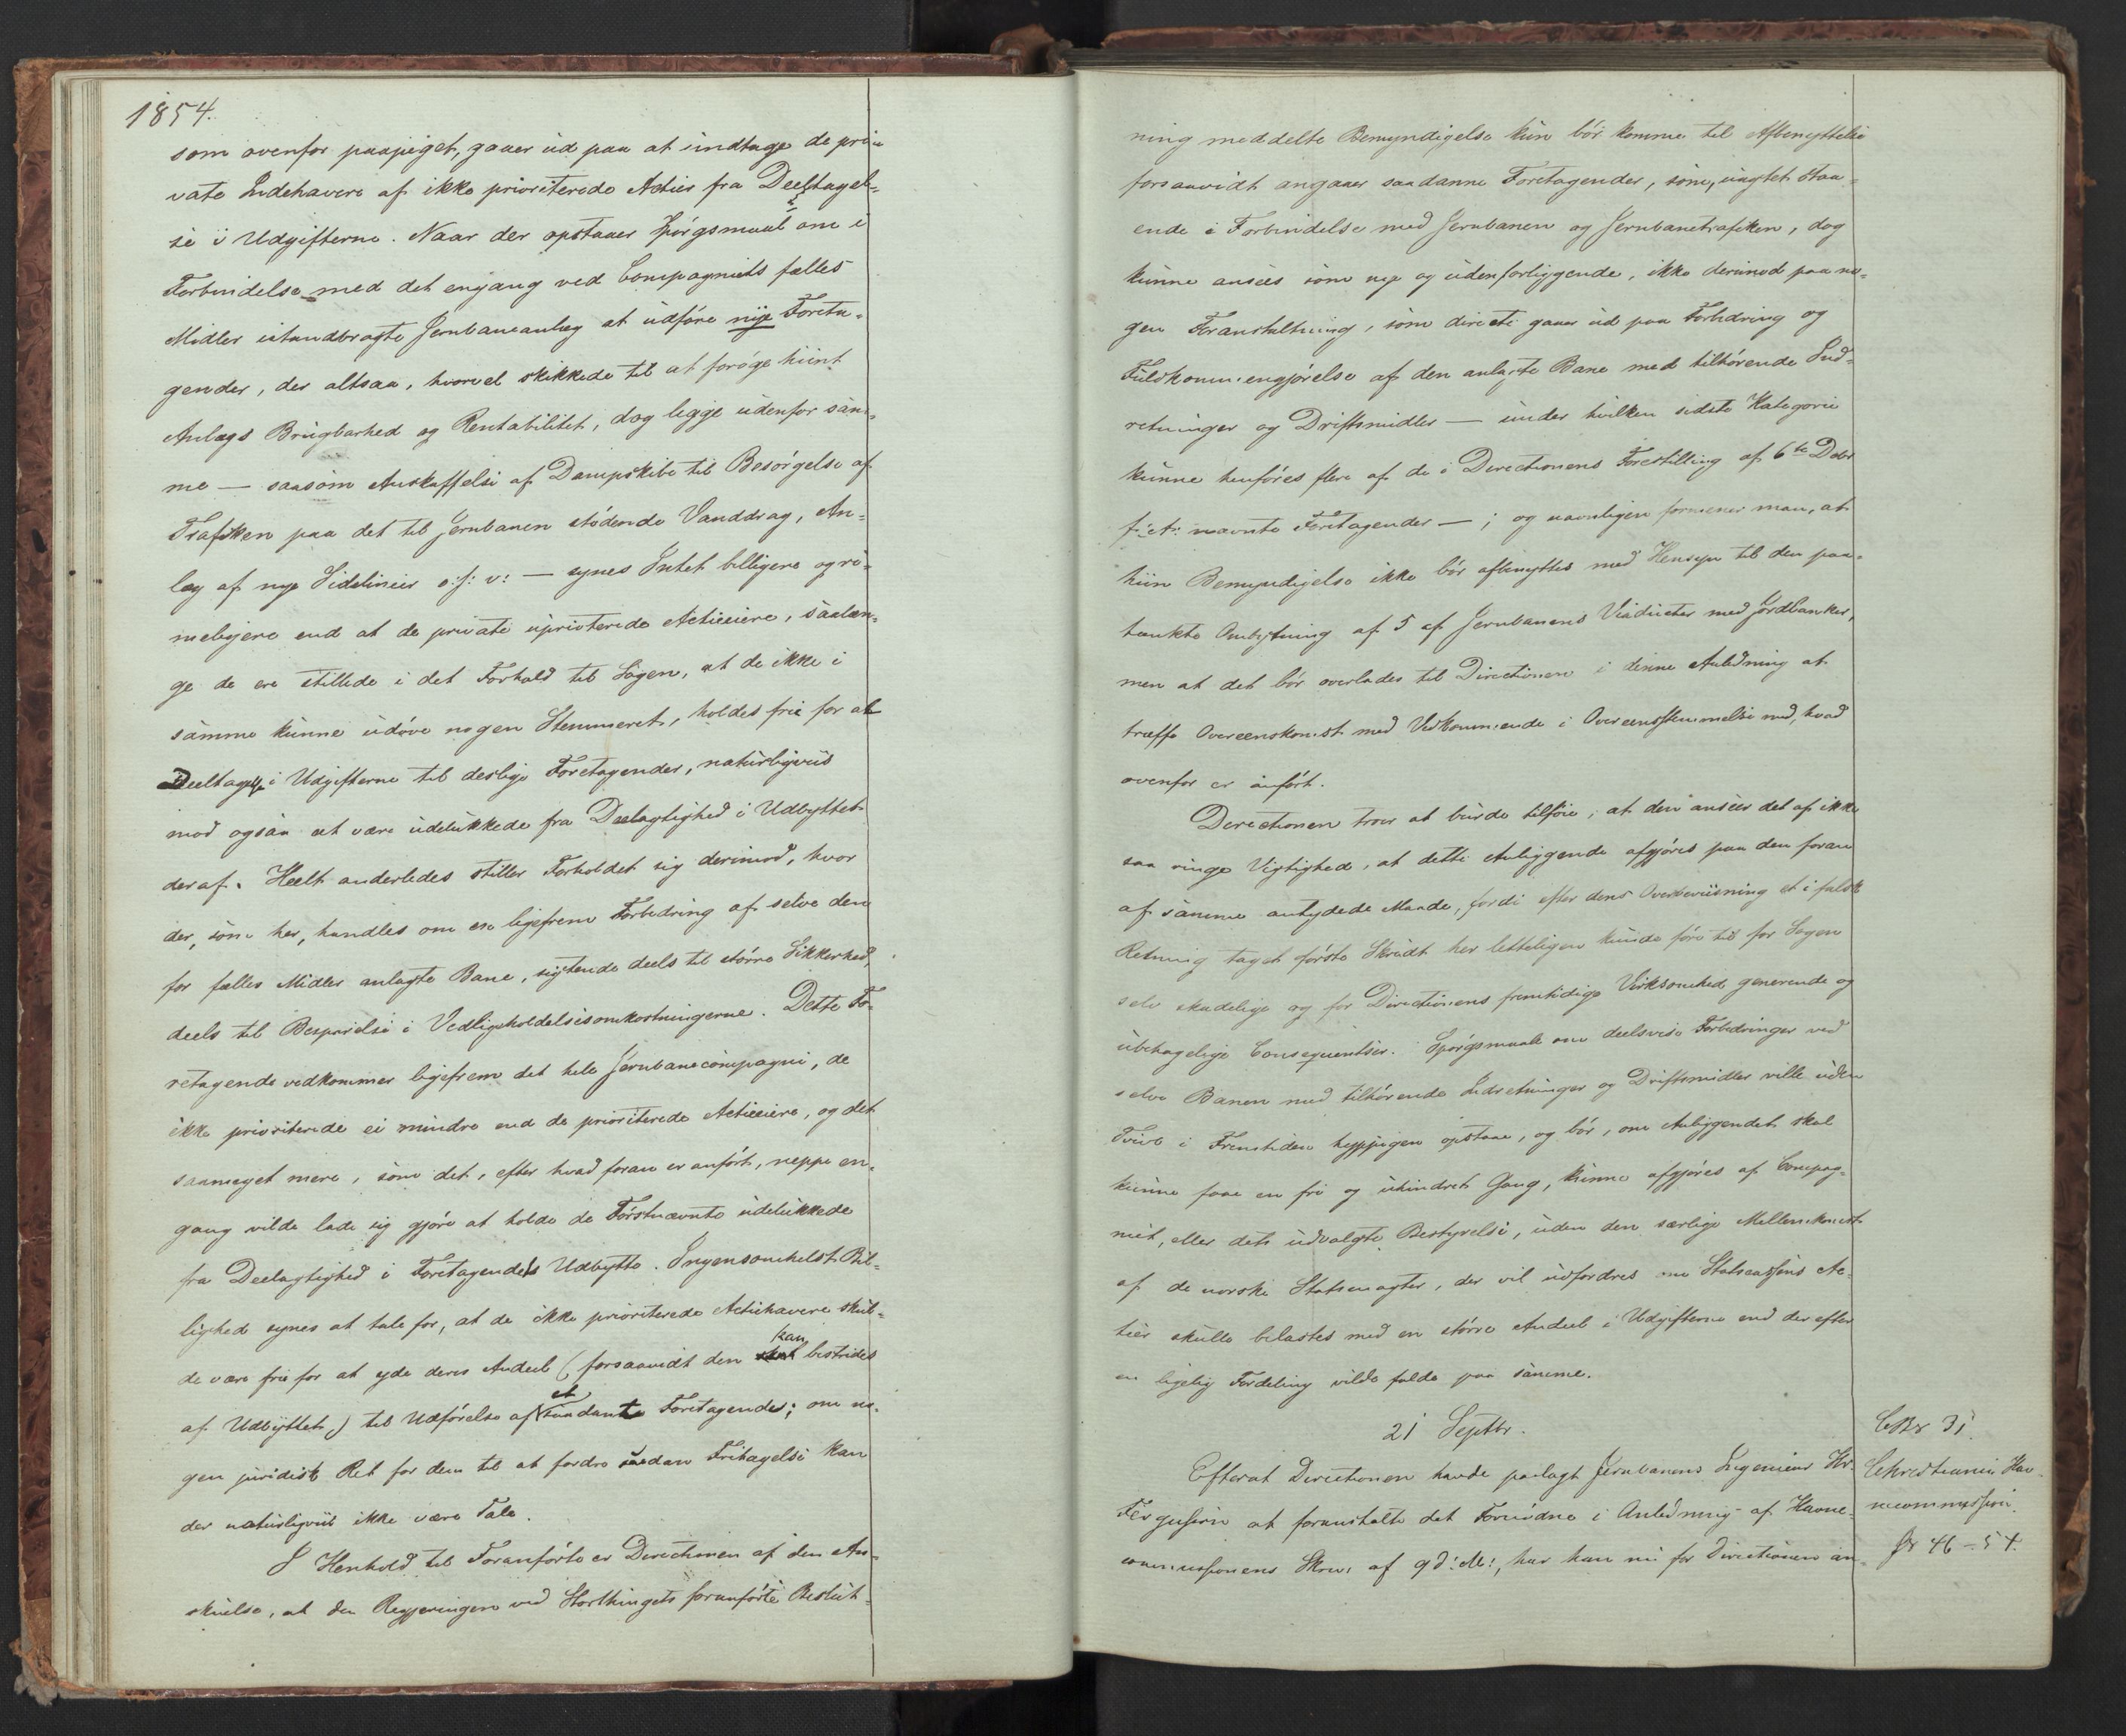 1854.
som ovenfor paapeget, gaaer ud paa at undtage de pri-
vate Indehavere af ikke prioriterede Actier fra Deeltagel-
se i Udgifterne. Naar der opstaaer Spørgsmaal om i
Forbindelse med det engang ved Compagniets fælles
Midler istandbragte Jernbaneanlæg at udføre nye Foreta-
gender, der altsaa, hvorvel skikkede til at forøge hiint
Anlægs Brugbarhed og Rentabilitet, dog ligge udenfor sam-
me — saasom Anskaffelse af Dampskibe til Besørgelse af
Trafiken paa det til Jernbanen stødende Vanddrag, An-
læg af nye Sidelinier o: s: v: — synes Intet billigere og ri-
meligere end at de private uprioterede Actieeiere, saalæn-
ge de ere stillede i det Forhold til Sagen, at de ikke i
samme kunne udøve nogen Stemmeret, holdes frie for al
Deeltagelse i Udgifterne til deslige Foretagender, naturligviis
mod ogsaa at være udelukkede fra Deelagtighed i Udbyttet
deraf. Heelt anderledes stiller Forholdet sig derimod, hvor
der, som her, handles om en ligefrem Forbedring af selve den
for fælles Midler anlagte Bane, sigtende deels til større Sikkerhed,
deels til Besparelse i Vedligeholdelsesomkostningerne. Dette Fo-
retagende vedkommer ligefrem det hele Jernbanecompagni, de
ikke prioriterede ei mindre end de prioriterede Actieeiere, og det
saameget mere, som det, efter hvad foran er anført, neppe en-
gang vilde lade sig gjøre at holde de Førstnævnte udelukkede
fra Deelagtighed i Foretagendets Udbytte. Ingensomhelst Bil-
lighed synes at tale for, at de ikke prioriterede Actiehavere skul-
de være frie for at yde deres Andeel (forsaavidt den kan bestrides
af Udbyttet) til Udførelse af et saadant Foretagende; om no-
gen juridisk Ret for dem til at fordre saadan Fritagelse kan
der naturligviis ikke være Tale.
I Henhold til Foranførte er Directionen af den An-
skuelse, at den Regjeringen ved Storthingets foranførte Beslut-
ning meddelte Bemyndigelse kun bør komme til Afbenyttelse
forsaavidt angaaer saadanne Foretagender, som, uagtet staa-
ende i Forbindelse med Jernbanen og Jernbanetrafiken, dog
kunne ansees som nye og udenforliggende, ikke derimod paa no-
gen Foranstaltning, som directe gaaer ud paa Forbedring og
Fuldkommengjørelse af den anlagte Bane med tilhørende Ind-
retninger og Driftsmidler — under hvilken sidste Kategorie
kunne henføres flere af de i Directionens Forestilling af 6te Debr
f: A: nævnte Foretagender — ; og navnligen formener man, at
hiin Bemyndigelse ikke bør afbenyttes med Hensyn til den paa-
tænkte Ombytning af 5 af Jernbanens Viaducter med Jordbanker,
men at det bør overlades til Directionen i denne Anledning at
træffe Overeenskomst med Vedkommende i Overeensstemmelse med, hvad
ovenfor er anført.
Directionen troer at burde tilføie, at den ansees det af ikke
saa ringe Vigtighed, at dette Anliggende afgjøres paa den foran
af samme antydede Maade, fordi efter dens Overbeviisning et i falsk
Retning taget første Skridt her letteligen kunde føre til for Sagen
selv skadelige og for Directionens fremtidige Virksomhed generende og
ubehagelige Consequentser. Spørgsmaale om deelsvise Forbedringer ved
selve Banen med tilhørende Indretninger og Driftsmidler ville uden
Tvivl i Fremtiden hyppigen opstaae, og bør, om Anliggendet skal
kunne faae en fri og uhindret Gang, kunne afgjøres af Compag-
niet, eller dets udvalgte Bestyrelse, uden den særlige Mellemkomst
af de norske Statsmagter, der vil udfordres om Statscassens Ac-
tier skulle belastes med en større Andeel i Udgifterne end der efter
en ligelig Fordeling vilde falde paa samme.
21 Septbr.
Efterat Directionen havde paalagt Jernbanens Ingenieur Hr.
Fergusson at foranstalte det Fornødne i Anledning af Havne-
commissionens Skriv. af 9 d: M:, har han nu for Directionen an-
CBr 31.
Christiania Hav-
necommission.
Jr 46 - 54.